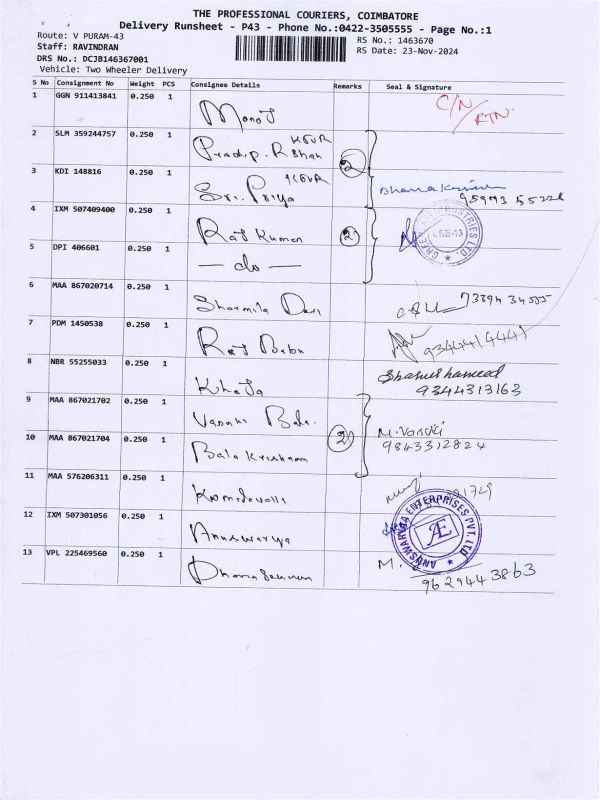 THE PROFESSIONAL COURIERS, COIMBATORE
Delivery Runsheet - P43 - Phone No.:0422-3505555 - Page No.:1
Route: V PURAM-43
RS No.: 1463670
Staff: RAVINDRAN
RS Date: 23-Nov-2024
DRS No.: DCJB146367001
Vehicle: Two Wheeler Delivery
S No Consignment No Weight PCS Consignee Details Remarks Seal & Signature
1 GGN 911413841 0.250 1 Monoj C/N RTN.
2 SLM 359244757 0.250 1 Pradip. R Shah KGUR
2
3 KDI 148816 0.250 1 Sri. Priya KGUR
95973 55221
4 IXM 507409400 0.250 1 Raj Kumar 2
5 DPI 406601 0.250 1 — do —
6 MAA 867020714 0.250 1 Sharmila Devi 73394 34555
7 PDM 1450538 0.250 1 Raj Babu 9344414441
8 NBR 55255033 0.250 1 Khaja
9344313163
9 MAA 867021702 0.250 1 Vasuki Bala. M. Vasuki
2 9843312824
10 MAA 867021704 0.250 1 Bala Krishnan
11 MAA 576206311 0.250 1
12 IXM 507301056 0.250 1 Anuswarya
ANUSWARYAA ENTERPRISES PVT. LTD.
AE
13 VPL 225469560 0.250 1 M.
9629443863